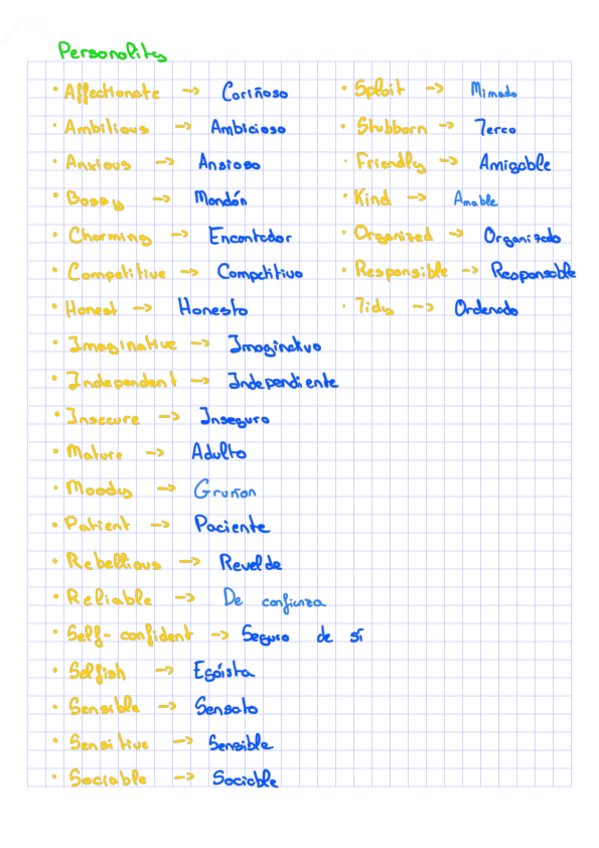 Personality
• Affectionate -> Cariñoso
• Ambitious -> Ambicioso
• Anxious -> Ansioso
• Bossy -> Mandón
• Charming -> Encantador
• Competitive -> Competitivo
• Honest -> Honesto
• Imaginative -> Imaginativo
• Independent -> Independiente
• Insecure -> Inseguro
• Mature -> Adulto
• Moody -> Gruñon
• Patient -> Paciente
• Rebellious -> Revelde
• Reliable -> De confianza
• Self-confident -> Seguro de sí
• Selfish -> Egóista
• Sensible -> Sensato
• Sensitive -> Sensible
• Sociable -> Sociable
• Sploit -> Mimado
• Stubborn -> Terco
• Friendly -> Amigable
• Kind -> Amable
• Organized -> Organizado
• Responsible -> Responsable
• Tidy -> Ordenado